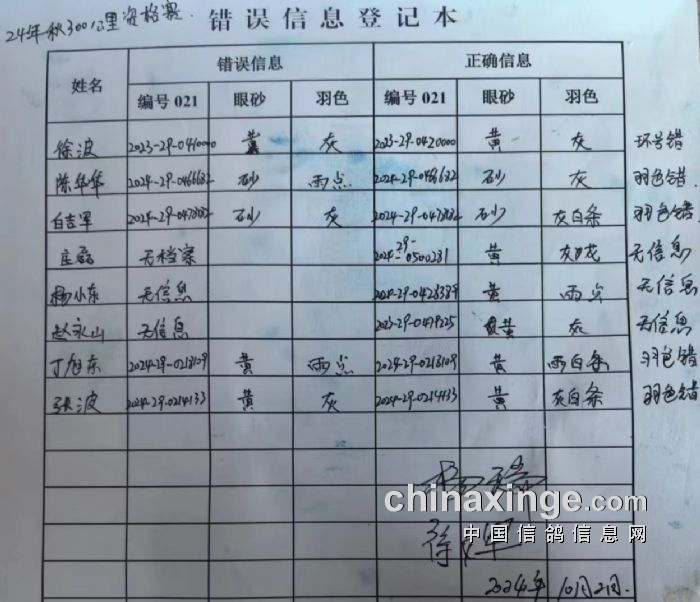 24年秋300公里资格赛
错误信息登记本
姓名 错误信息 正确信息
编号021 眼砂 羽色 编号021 眼砂 羽色
徐波 2023-29-0410000 黄 灰 2023-29-0420000 黄 灰 环号错
陈华华 2024-29-0466632 砂 雨点 2024-29-0466632 砂 灰 羽色错
白吉军 砂 灰 砂 灰白条 羽色错
庄磊 无档案 2024-29-0500231 黄 无信息
杨小东 无信息 2024-29-0428389 黄 雨点 无信息
赵永山 无信息 2023-29-0479225 黄 灰 无信息
丁旭东 2024-29-0213109 黄 雨点 2024-29-0213109 黄 雨白条 羽色错
张波 2024-29-0214133 黄 灰 2024-29-0214133 黄 灰白条 羽色错
chinaxinge.com
中国信鸽信息网
2024年10月21日